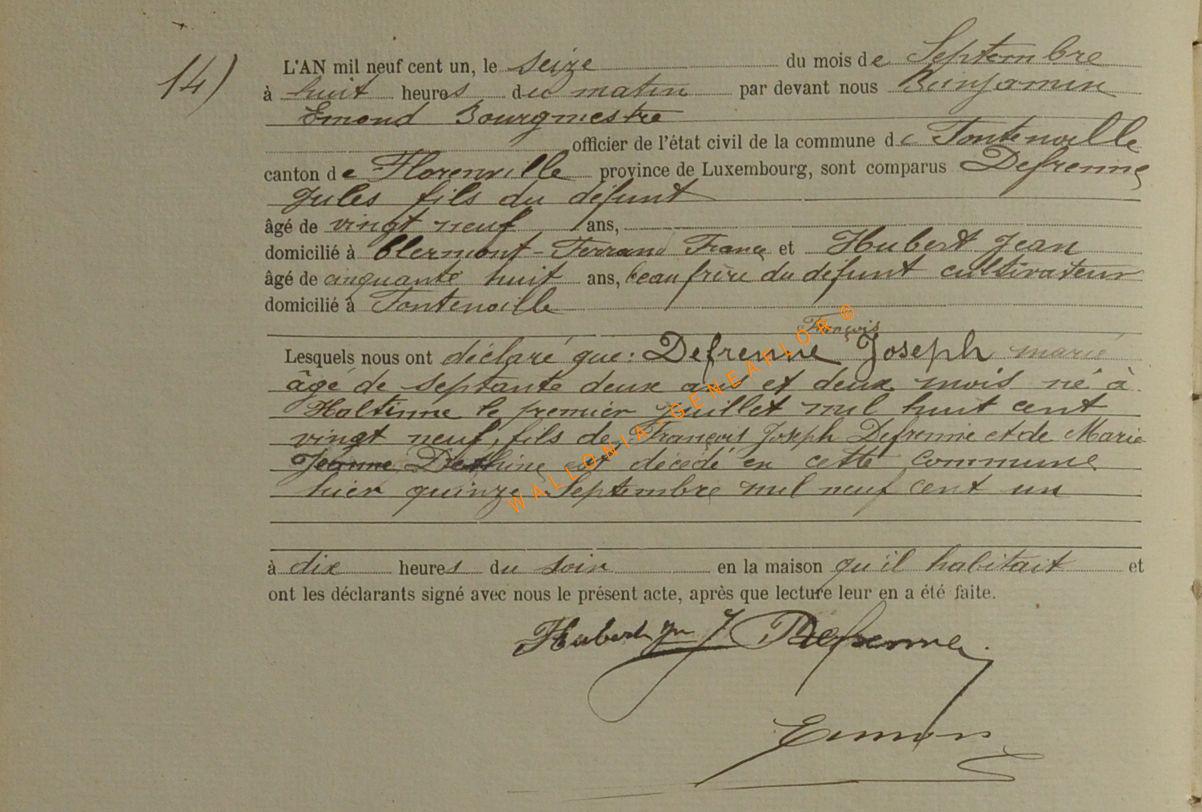 14)
L'AN mil neuf cent un, le seize du mois de Septembre
à huit heures du matin par devant nous Benjamin
Emond Bourgmestre
officier de l'état civil de la commune de Fontenoille
canton de Florenville province de Luxembourg, sont comparus Defrenne
Jules fils du défunt
âgé de vingt neuf ans,
domicilié à Clermont-Ferrand France et Hubert Jean
âgé de cinquante huit ans, beau frère du défunt cultivateur
domicilié à Fontenoille
François
Lesquels nous ont déclaré que: Defrenne Joseph marié
âgé de septante deux ans et deux mois né à
Haltinne le premier juillet mil huit cent
vingt neuf, fils de François Joseph Defrenne et de Marie
Jeanne est décédé en cette commune
hier quinze Septembre mil neuf cent un
à dix heures du soir en la maison qu'il habitait et
ont les déclarants signé avec nous le présent acte, après que lecture leur en a été faite.
Hubert Jn J Defrenne
Emond
WALLONIA-GENEANLOR©